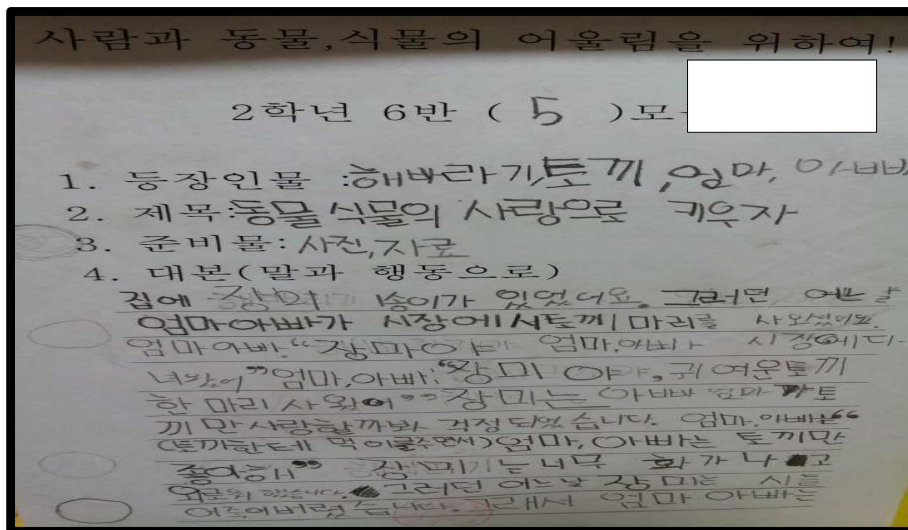 사람과 동물,식물의 어울림을 위하여!
2학년 6반 ( 5 )모
1. 등장인물 :해바라기,토끼,엄마, 아빠
2. 제목:동물 식물의 사랑으로 키우자
3. 준비물: 사진,자료
4. 대본(말과 행동으로)
집에 장미 1송이가 있었어요. 그러던 어느 날
엄마아빠가 시장에서토끼1마리를 사오셨어요.
엄마아빠:“장미야 엄마.아빠 시장에다
녀왔어”엄마,아빠:“장미야,귀여운토끼
한 마리 사왔어”장미는 아빠 엄마가토
끼만사랑할까봐 걱정되었습니다. 엄마.아빠는“
(토끼한테 먹이를주면서)엄마,아빠는 토끼만
좋아해” 장미는너무 화가 나고
그러던 어느날 장미는 시들
어죽어버렸습니다. 그래서 엄마 아빠는